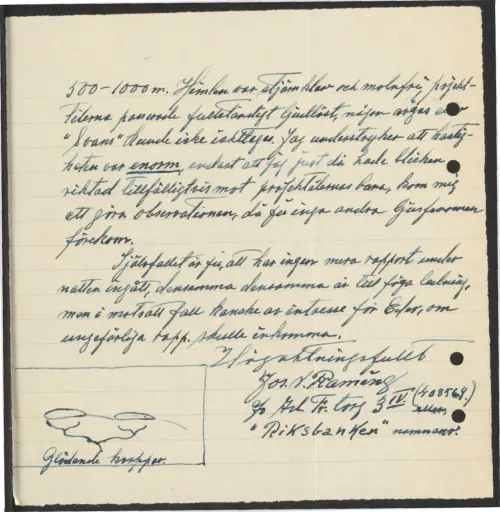 500-1000 m. Himlen var stjärnklar och molnfri, projek-
tilerna passerade fullständigt ljudlöst, någon
"Svans" kunde icke iakttagas. Jag understryker att hastig-
heten var enorm, endast att jag just då hade blicken
riktad tillfälligtvis mot projektilernas bana, kom mig
att göra observationen, då ju inga andra ljusfenomen
förekom.
Självfallet är ju, att har ingen mera rapport under
natten ingått, densamma densamma är till föga ledning,
men i motsatt fall kanske av intresse för Eder, om
ungefärliga rapp. skulle inkomma.
Högaktningsfullt
Jos. V.
3 IV. (408569.)
"Riksbanken"
Glödande kroppar.